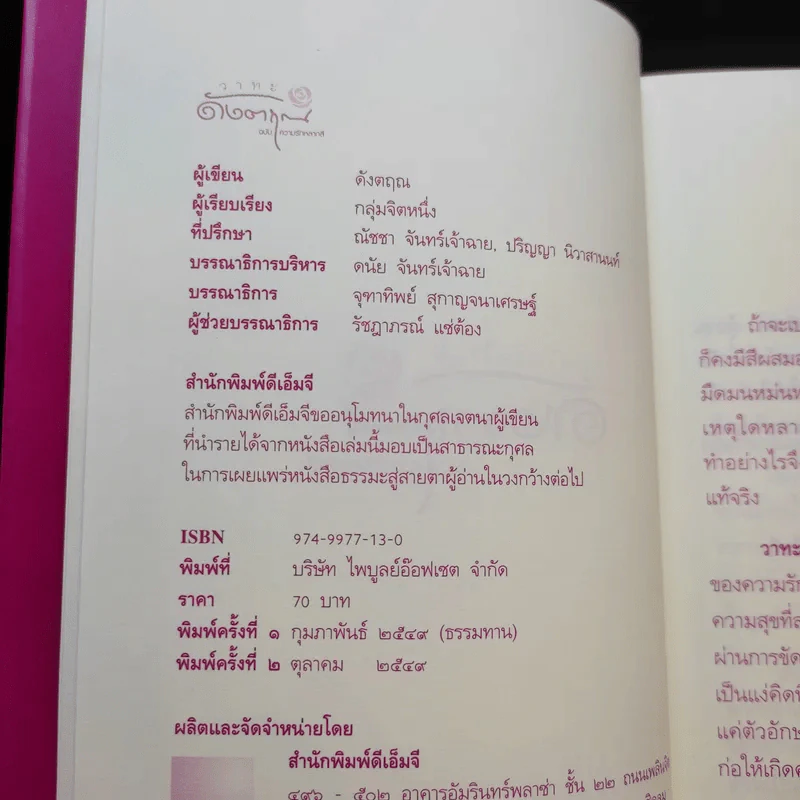 วาทะ
ดังตฤณ
ฉบับ ความรักหลากสี
ผู้เขียน ดังตฤณ
ผู้เรียบเรียง กลุ่มจิตหนึ่ง
ที่ปรึกษา ณัชชา จันทร์เจ้าฉาย, ปริญญา นิวาสานนท์
บรรณาธิการบริหาร ดนัย จันทร์เจ้าฉาย
บรรณาธิการ จุฑาทิพย์ สุกาญจนาเศรษฐ์
ผู้ช่วยบรรณาธิการ รัชฎาภรณ์ แซ่ต้อง
สำนักพิมพ์ดีเอ็มจี
สำนักพิมพ์ดีเอ็มจีขออนุโมทนาในกุศลเจตนาผู้เขียน
ที่นำรายได้จากหนังสือเล่มนี้มอบเป็นสาธารณะกุศล
ในการเผยแพร่หนังสือธรรมะสู่สายตาผู้อ่านในวงกว้างต่อไป
ISBN 974-9977-13-0
พิมพ์ที่ บริษัท ไพบูลย์อ๊อฟเซต จำกัด
ราคา 70 บาท
พิมพ์ครั้งที่ ๑ กุมภาพันธ์ ๒๕๔๙ (ธรรมทาน)
พิมพ์ครั้งที่ ๒ ตุลาคม ๒๕๔๙
ผลิตและจัดจำหน่ายโดย
สำนักพิมพ์ดีเอ็มจี
๔๙๖ - ๕๐๒ อาคารอัมรินทร์พลาซ่า ชั้น ๒๒ ถนนเพลินจิต
ถ้าจะเป
ก็คงมีสีผสมอ
มืดมนหม่นห
เหตุใดหลา
ทำอย่างไรจึ
แท้จริง
วาทะ
ของความรัก
ความสุขที่ส
ผ่านการขัด
เป็นแง่คิดที่
แค่ตัวอักษ
ก่อให้เกิดค